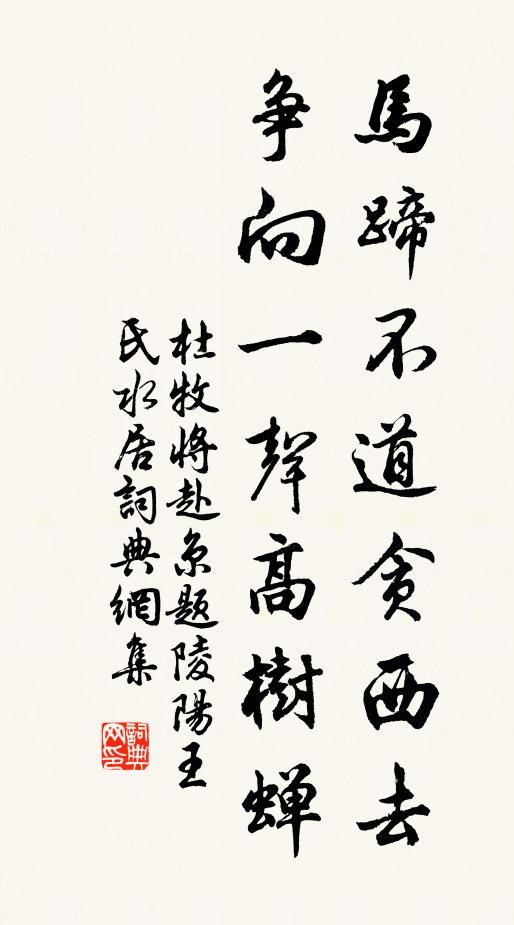 馬蹄不道貪西去
争向一聲高樹蝉
杜牧將赴京題陵陽王
氏水居詞典網集
詞典网印